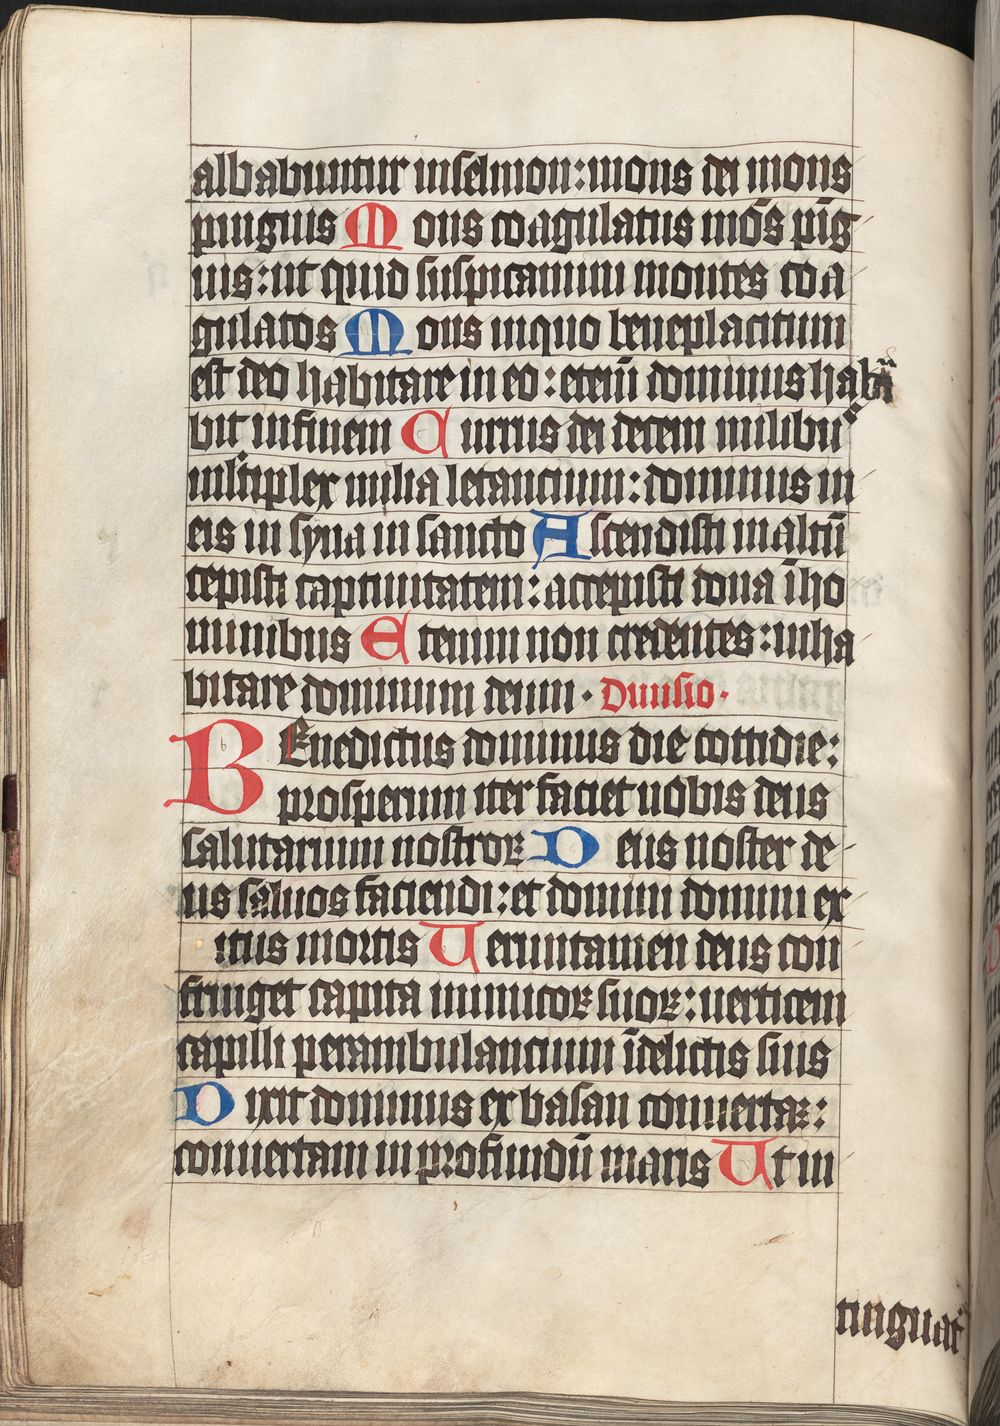 albabuntur in selmon: mons dei mons
pinguis Mons coagulatus mōs pīg
uis: ut quid suspicamini montes coa
gulatos Mons in quo beneplacitum
est deo habitare in eo: eteni̅ dominus habi
bit in finem Currus dei decem milibu
multiplex milia letancium: dominus in
eis in syna in sancto Ascendisti in altū
cepisti captiuitatem: accepisti dona ī ho
minibus Etenim non credentes: inha
bitare dominum deum · Diuisio ·
BEnedictus dominus die cottidie:
prosperum iter faciet nobis deus
salutarium nostroꝝ Deus noster de
us saluos faciendi: et domini domini ex
itus mortis Ueruntamen deus con
fringet capita inimicoꝝ suoꝝ: uerticem
capilli perambulancium ī delictis suis
Dixit dominus ex basan conuertaꝫ:
conuertam in profundū maris Ut in
tinguat̄